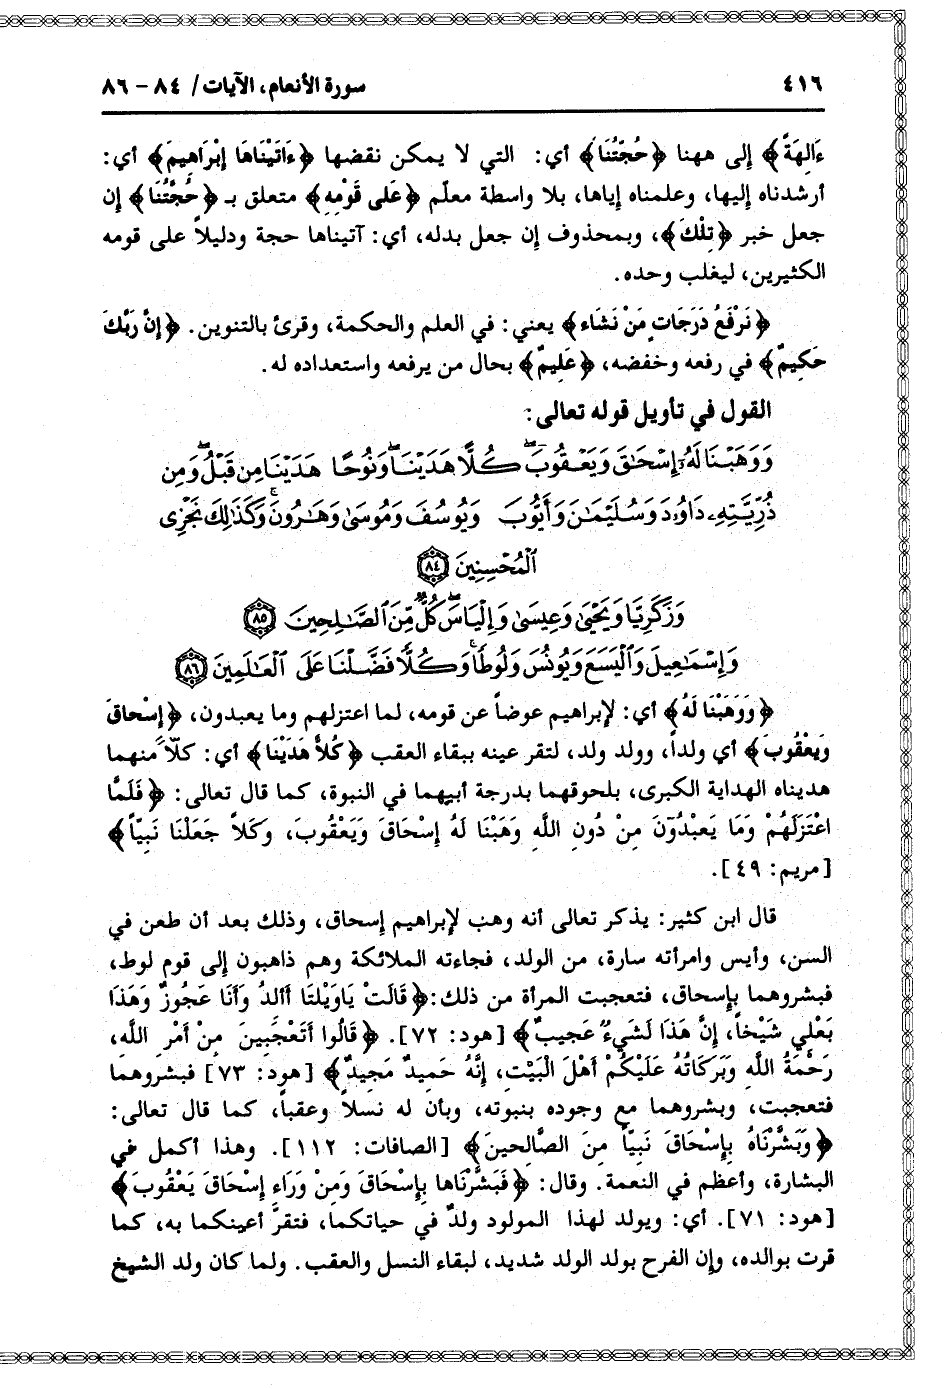 ٤١٦
سورة الأنعام، الآيات/ ٨٤ – ٨٦
ءَالِهَةً﴾ إلى ههنا ﴿حُجَّتُنَا﴾ أي: التي لا يمكن نقضها ﴿ءَاتَيْنَاهَا إِبْرَاهِيمَ﴾ أي:
أرشدناه إليها، وعلمناه إياها، بلا واسطة معلّم ﴿عَلى قَوْمِهِ﴾ متعلق بـ ﴿حُجَّتُنَا﴾ إن
جعل خبر ﴿تِلْكَ﴾، وبمحذوف إن جعل بدله، أي: آتيناها حجة ودليلاً على قومه
الكثيرين، ليغلب وحده.
﴿نَرْفَعُ دَرَجَاتٍ مَنْ نَشَاء﴾ يعني: في العلم والحكمة، وقرئ بالتنوين. ﴿إِنَّ رَبَّكَ
حَكِيمٌ﴾ في رفعه وخفضه، ﴿عَلِيمٌ﴾ بحال من يرفعه واستعداده له.
القول في تأويل قوله تعالى:
وَوَهَبْنَا لَهُۥٓ إِسْحَٰقَ وَيَعْقُوبَۚ كُلًّا هَدَيْنَاۚ وَنُوحًا هَدَيْنَا مِن قَبْلُۖ وَمِن
ذُرِّيَّتِهِۦ دَاوُۥدَ وَسُلَيْمَٰنَ وَأَيُّوبَ وَيُوسُفَ وَمُوسَىٰ وَهَٰرُونَۚ وَكَذَٰلِكَ نَجْزِى
ٱلْمُحْسِنِينَ ٨٤
وَزَكَرِيَّا وَيَحْيَىٰ وَعِيسَىٰ وَإِلْيَاسَۖ كُلٌّ مِّنَ ٱلصَّٰلِحِينَ ٨٥
وَإِسْمَٰعِيلَ وَٱلْيَسَعَ وَيُونُسَ وَلُوطًاۚ وَكُلًّا فَضَّلْنَا عَلَى ٱلْعَٰلَمِينَ ٨٦
﴿وَوَهَبْنَا لَهُ﴾ أي: لإبراهيم عوضاً عن قومه، لما اعتزلهم وما يعبدون، ﴿إِسْحَاقَ
وَيَعْقُوبَ﴾ أي ولداً، وولد ولد، لتقر عينه ببقاء العقب ﴿كُلاًّ هَدَيْنَا﴾ أي: كلاًّ منهما
هديناه الهداية الكبرى، بلحوقهما بدرجة أبيهما في النبوة، كما قال تعالى: ﴿فَلَمَّا
اعْتَزَلَهُمْ وَمَا يَعبْدُوَنَ مِنْ دُونِ اللَّهِ وَهَبْنَا لَهُ إِسْحَاقَ وَيَعْقُوبَ، وَكَلاًّ جَعَلْنَا نَبِيّاً﴾
[مريم: ٤٩].
قال ابن كثير: يذكر تعالى أنه وهب لإبراهيم إسحاق، وذلك بعد أن طعن في
السن، وأيس وامرأته سارة، من الولد، فجاءته الملائكة وهم ذاهبون إلى قوم لوط،
فبشروهما بإسحاق، فتعجبت المرأة من ذلك:﴿قَالَتْ يَاوَيْلَتَا أَأَلِدُ وَأَنَا عَجُوزٌ وَهَذَا
بَعْلِي شَيْخاً، إِنَّ هَذَا لَشَيْءٌ عَجِيبٌ﴾ [هود: ٧٢]. ﴿قَالُوا أَتَعْجَبِينَ مِنْ أَمْرِ اللَّهِ،
رَحْمَةُ اللَّهِ وَبَرَكَاتُهُ عَلَيْكُمْ أَهْلَ الْبَيْتِ، إِنَّهُ حَمِيدٌ مَجِيدٌ﴾ [هود: ٧٣] فبشروهما
فتعجبت، وبشروهما مع وجوده بنبوته، وبأن له نسلاً وعقباً، كما قال تعالى:
﴿وَبَشَّرْنَاهُ بِإِسْحَاقَ نَبِيّاً مِنَ الصَّالِحينَ﴾ [الصافات: ١١٢]. وهذا أكمل في
البشارة، وأعظم في النعمة. وقال: ﴿فَبَشَّرْنَاها بِإِسْحَاقَ وَمِنْ وَرَاءِ إِسْحَاقَ يَعْقُوبَ﴾
[هود: ٧١]. أي: ويولد لهذا المولود ولدٌ في حياتكما، فتقرَّ أعينكما به، كما
قرت بوالده، وإن الفرح بولد الولد شديد، لبقاء النسل والعقب. ولما كان ولد الشيخ